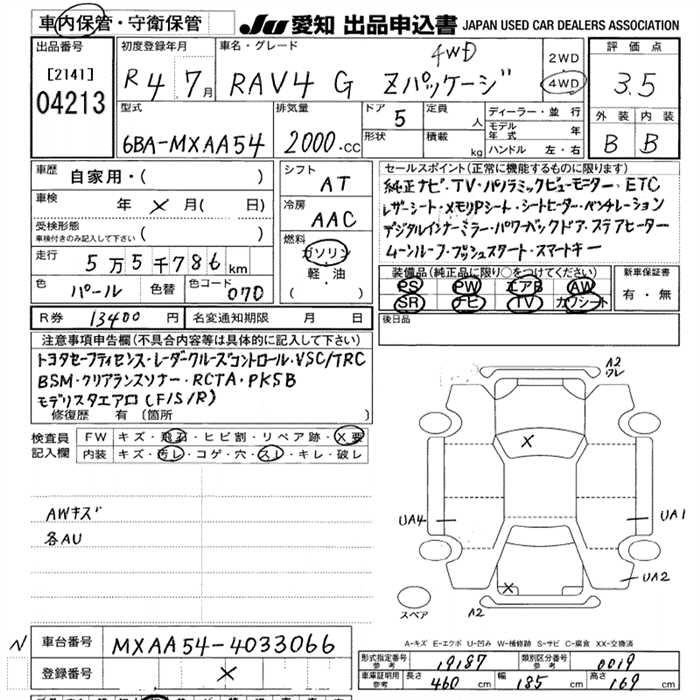 車内保管・守衛保管 JU 愛知 出品申込書 JAPAN USED CAR DEALERS ASSOCIATION
出品番号 [2141] 04213
初度登録年月 R4 7月
車名・グレード RAV4 G Zパッケージ 4WD
2WD 4WD
評価点 3.5
外装 内装
B B
型式 6BA-MXAA54
排気量 2000.CC
ドア 5 形状
定員 人 積載 kg
ディーラー・並行
モデル年式 年
ハンドル 左・右
車歴 自家用・( )
車検 年 × 月( 日)
受検形態 車検付きのみ記入して下さい ( )
走行 5万5千786km
色 パール 色替 色コード 070
シフト AT
冷房 AAC
燃料 ガソリン・軽・油 ( )
セールスポイント(正常に機能するものに限ります)
純正ナビ・TV・パノラミックビューモニター・ETC
レザーシート・メモリPシート・シートヒーター・ベンチレーション
デジタルインナーミラー・パワーバックドア・ステアヒーター
ムーンルーフ・プッシュスタート・スマートキー
装備品(純正品に限り○をつけてください) 新車保証書
PS PW エアB AW 有・無
SR ナビ TV カワシート
後日品
R券 13400円 名変通知期限 月 日
注意事項申告欄(不具合内容等は具体的に記入して下さい)
トヨタセーフティセンス・レーダークルーズコントロール・VSC/TRC
BSM・クリアランスソナー・RCTA・PKSB
モデリスタエアロ(F/S/R)
修復歴 有(箇所 )
検査員記入欄 FW キズ・飛石・ヒビ割・リペア跡・X要
内装 キズ・汚レ・コゲ・穴・スレ・キレ・破レ
AWキズ
各AU
A2
ワレ
×
UA4
UA1
UA2
×
A2
スペア
A-キズ E-エクボ U-凹み W-補修跡 S-サビ C-腐食 XX-交換済
N 車台番号 MXAA54-4033066
登録番号 ×
形式指定番号 参考 19187 類別区分番号 参考 0019
車庫証明用 参考 長さ 460 cm 幅 185 cm 高さ 169 cm